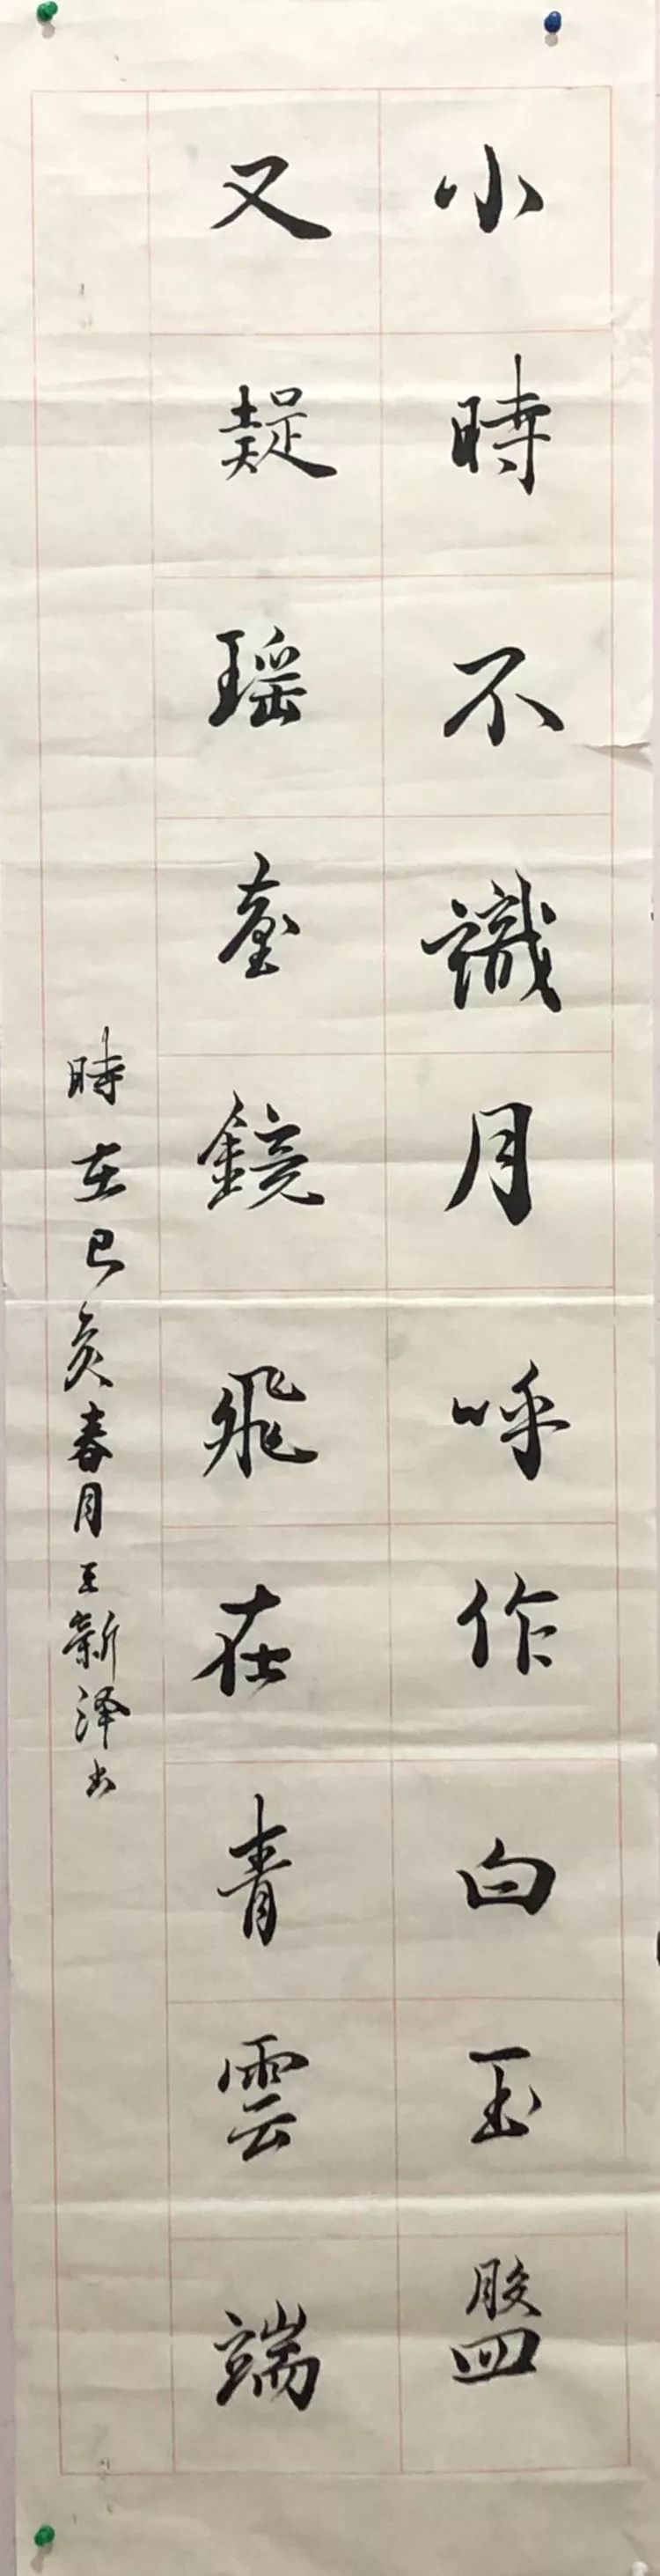 小時不識月呼作白玉盤
又疑瑶臺鏡飛在青雲端
時在己亥春月王新泽书